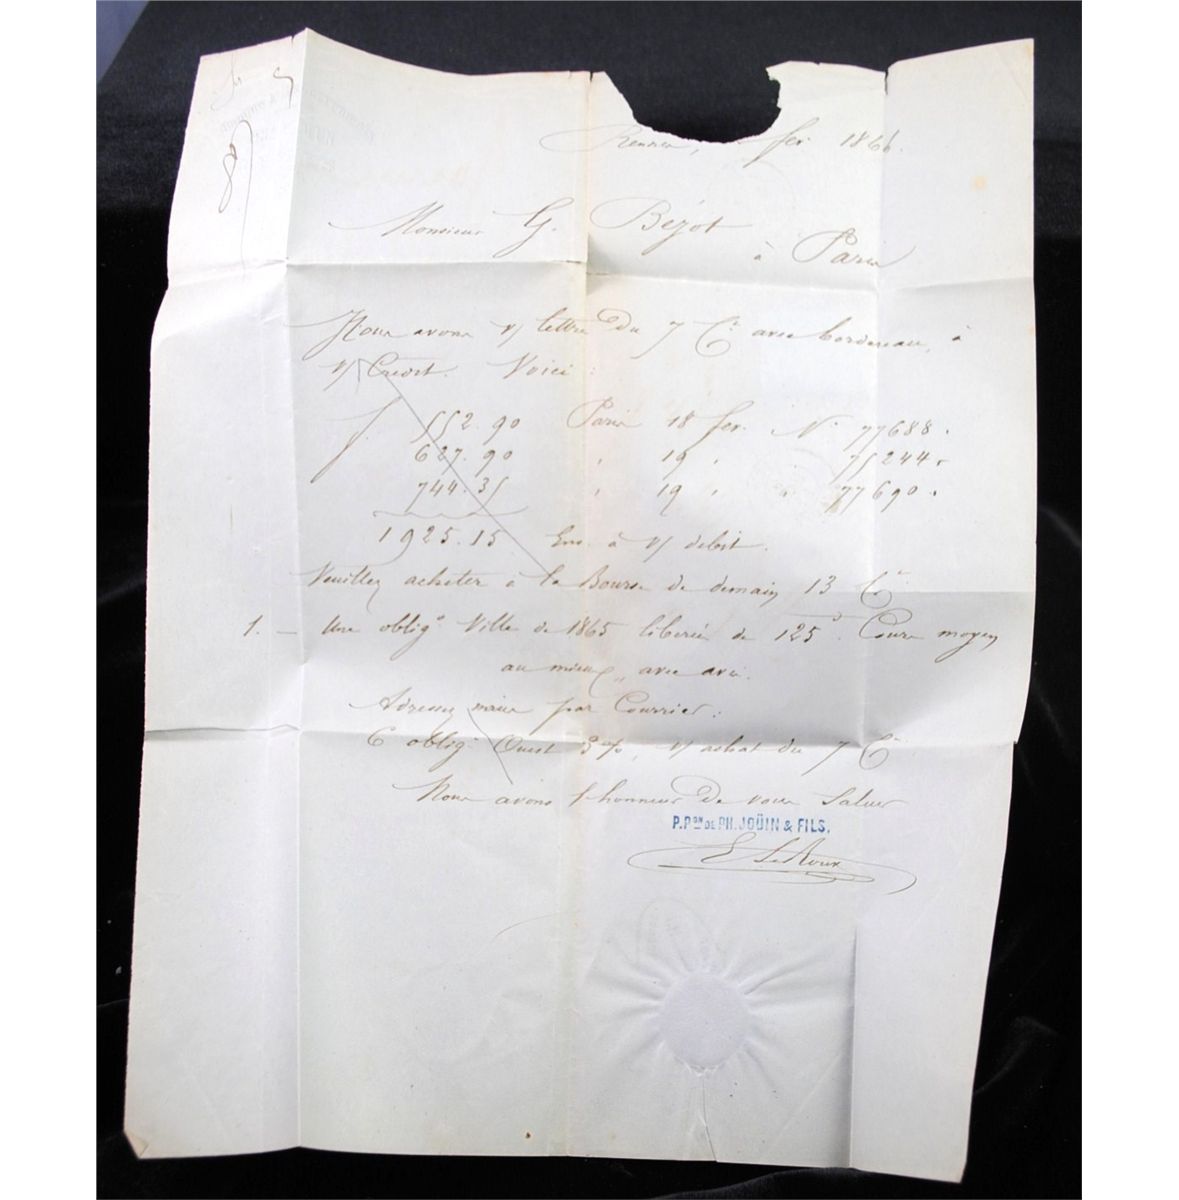 Rennes, fev 1866.
Monsieur G. Bézot
à Paris
Nous avons v/ lettre du 7 Ct avec bordereau, à
v/ Crédit. Voici :
f. 552.90 Paris 18 fev. N° 77688.
627.90 " 19 " " 75244.
744.35 " 19 " " 77690.
1925.15 Enc. à v/ debit.
Veuillez acheter à la Bourse de demain 13 Ct
1. — Une oblig° Ville de 1865 liberée de 125f. Cours moyen
au mieux, avec avis.
Adressez nous par Courrier :
6 oblig° Ouest 3%, v/ achat du 7 Ct
Nous avons l'honneur de vous saluer
P. PON DE PH. JOÜIN & FILS.
E LeRoux